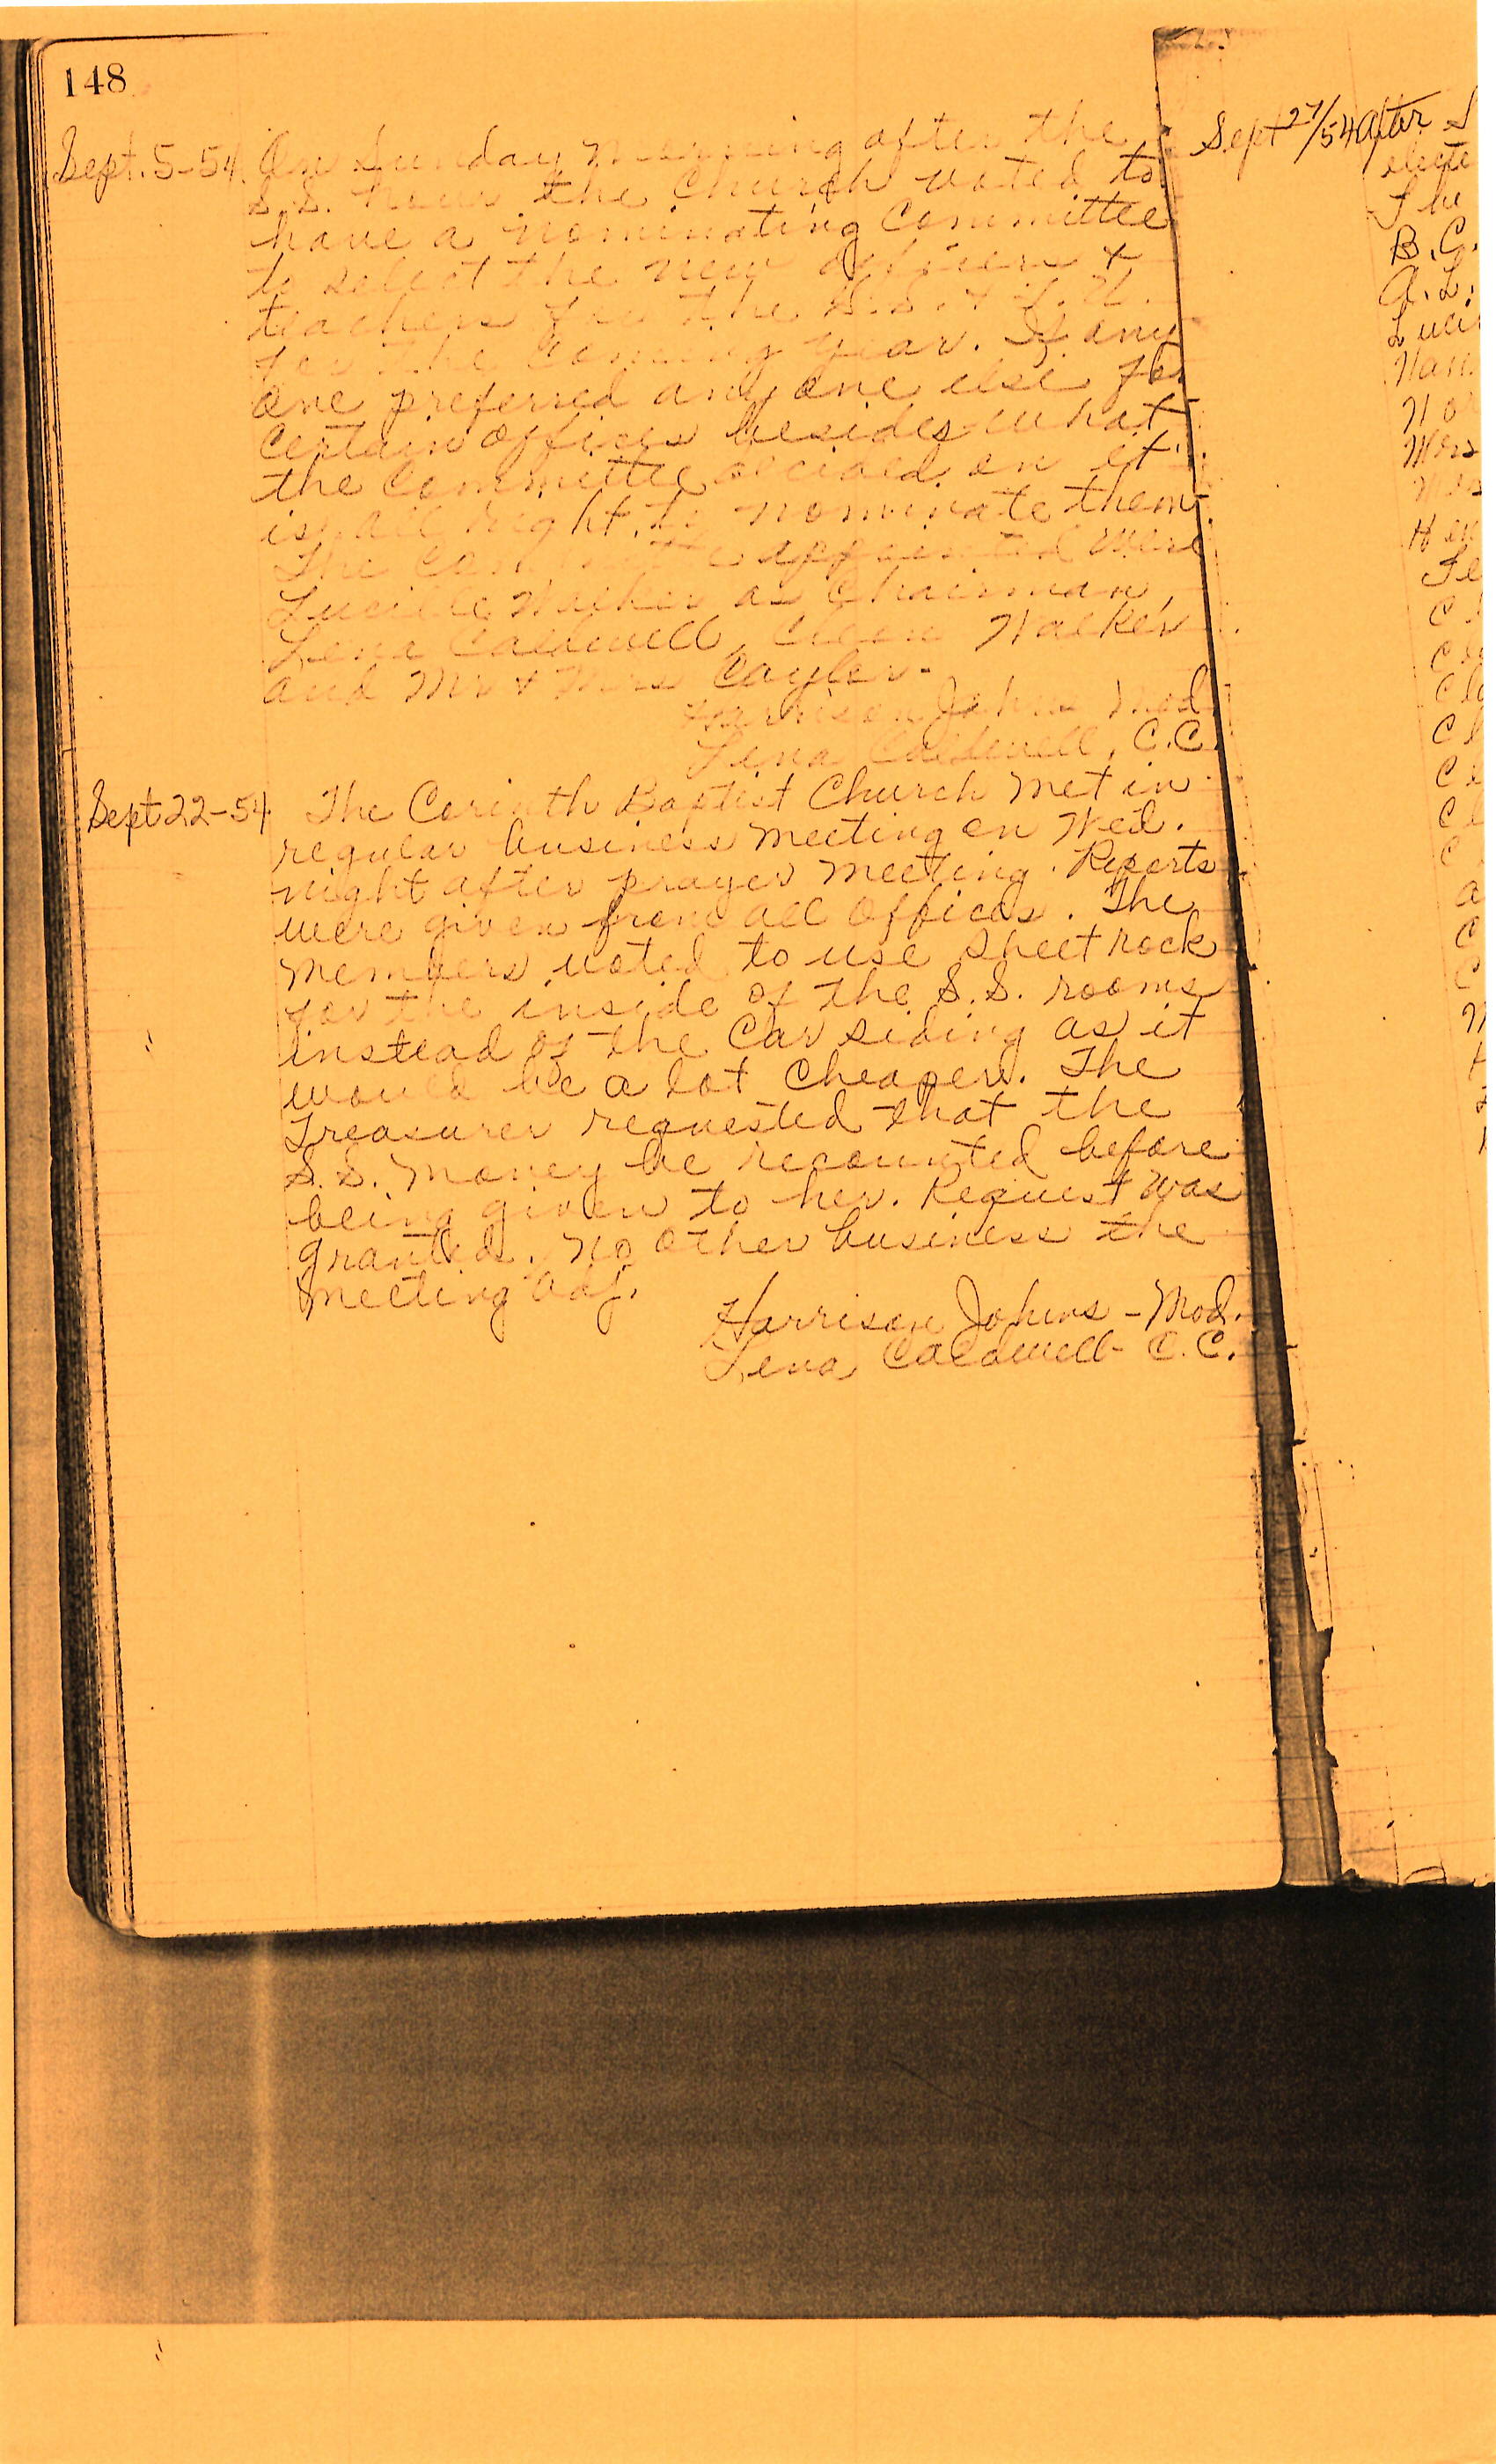 148
Sept. 5-54. On Sunday morning after the
S.S. hour the Church voted to
have a nominating Committee
to select the new officers +
teachers for the S.S. + T.U.
for the coming year. If any
one preferred any one else for
certain offices besides what
the Committee decided on it
is all right to nominate them.
The Committee appointed were
Lucille Walker as Chairman,
Lena Caldwell, Walker
and Mr + Mrs Cayler.
Harrison Johns Mod
Lena Caldwell, C.C.
Sept 22-54 The Corinth Baptist Church met in
regular business meeting on Wed.
night after prayer meeting. Reports
were given from all offices. The
members voted to use sheet rock
for the inside of the S.S. rooms
instead of the Car siding as it
would be a lot cheaper. The
Treasurer requested that the
S.S. money be recounted before
being given to her. Request was
granted. No other business the
meeting adj.
Harrison Johns - Mod.
Lena Caldwell - C.C.
Sept 27/54 After S
electe
The
B.C.
A.L.
Luci
Nan
Nor
Mrs
Mrs
Hen
Te